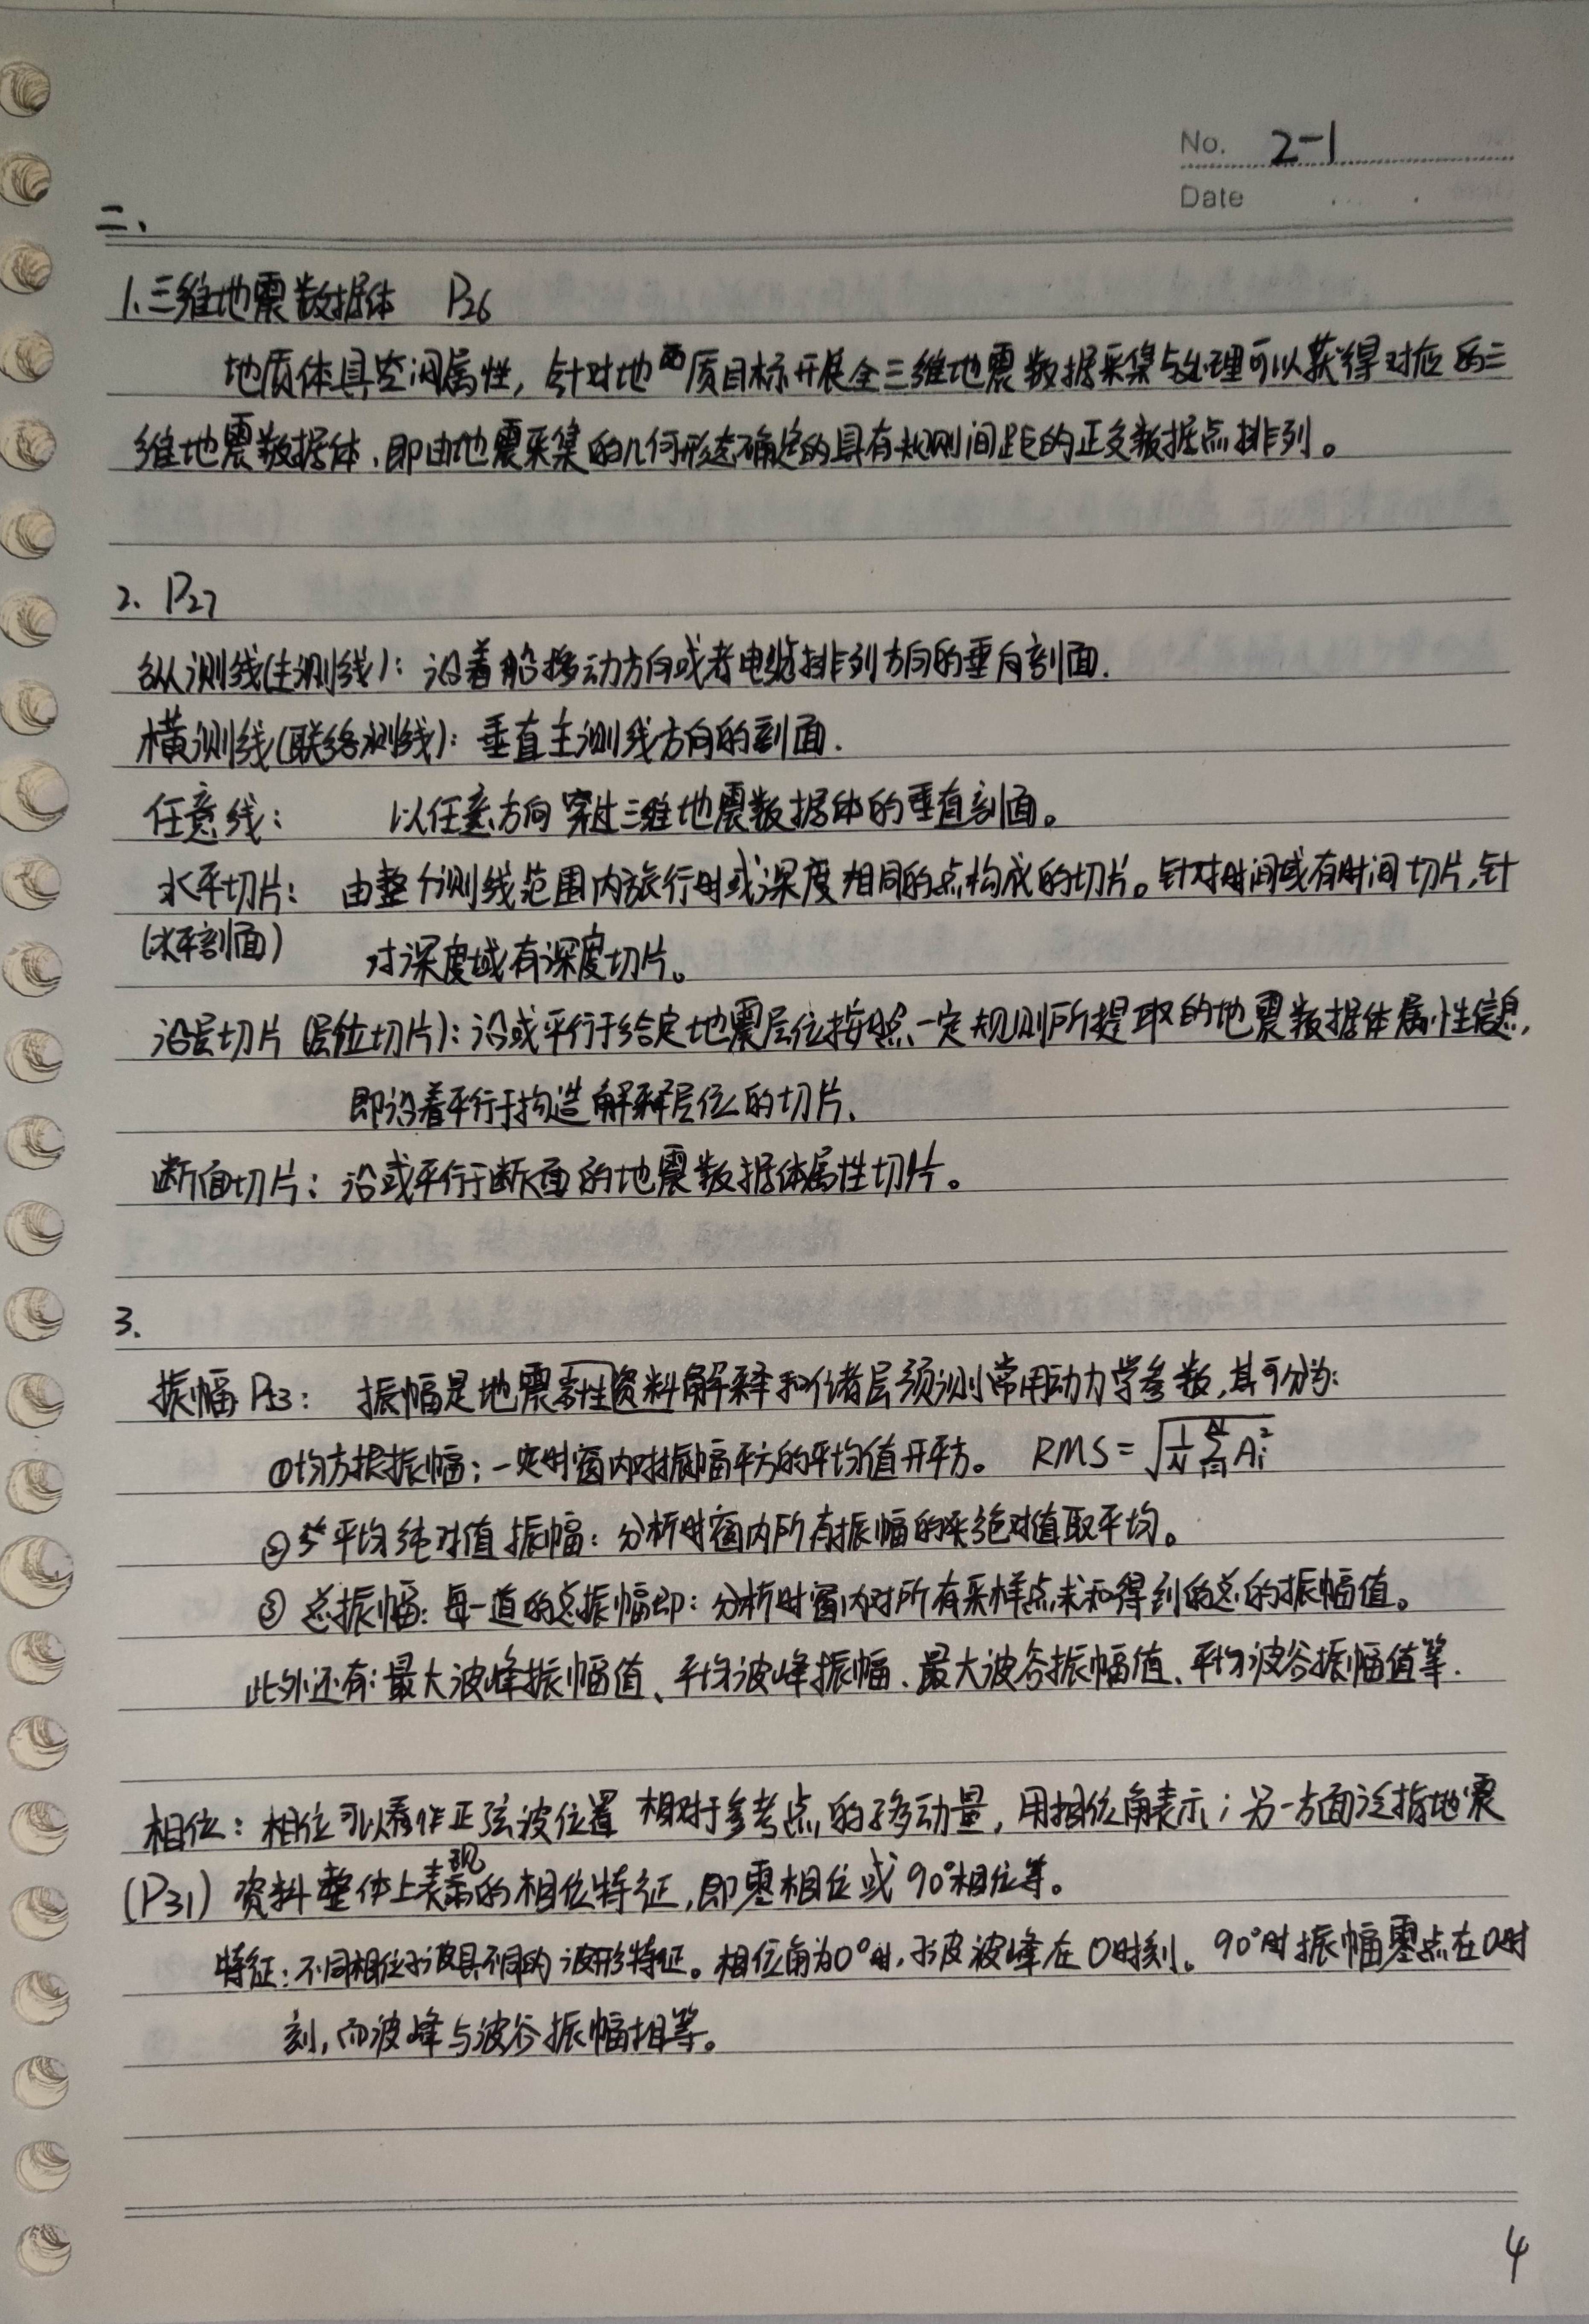 No. 2-1
Date
二、
1、三维地震数据体 P26
地质体具空间属性，针对地质目标开展全三维地震数据采集与处理可以获得对应的三
维地震数据体，即由地震采集的几何形态确定的具有规则间距的正交数据点排列。
2. P27
纵测线(主测线)：沿着船移动方向或者电缆排列方向的垂向剖面.
横测线(联络测线)：垂直主测线方向的剖面.
任意线： 以任意方向穿过三维地震数据体的垂直剖面。
水平切片： 由整个测线范围内旅行时或深度相同的点构成的切片。针对时间域有时间切片,针
(水平剖面) 对深度域有深度切片。
沿层切片(层位切片)：沿或平行于给定地震层位按照一定规则所提取的地震数据体属性信息,
即沿着平行于构造解释层位的切片、
断面切片：沿或平行于断面的地震数据体属性切片。
3.
振幅P23： 振幅是地震资料解释和储层预测常用动力学参数,其可分为:
①均方根振幅：一定时窗内对振幅平方的平均值开平方。 RMS = √(1/N ∑ᵢ₌₁ᴺ Aᵢ²)
②平均绝对值振幅：分析时窗内所有振幅的求绝对值取平均。
③ 总振幅：每一道的总振幅即：分析时窗内对所有采样点求和得到的总的振幅值。
此外还有:最大波峰振幅值、平均波峰振幅、最大波谷振幅值、平均波谷振幅值等.
相位：相位可以看作正弦波位置相对于参考点的移动量，用相位角表示；另一方面泛指地震
(P31) 资料整体上表现的相位特征,即零相位或90°相位等。
特征：不同相位子波具不同的波形特征。相位角为0°时,子波波峰在0时刻。90°时振幅零点在0时
刻,而波峰与波谷振幅相等。
4